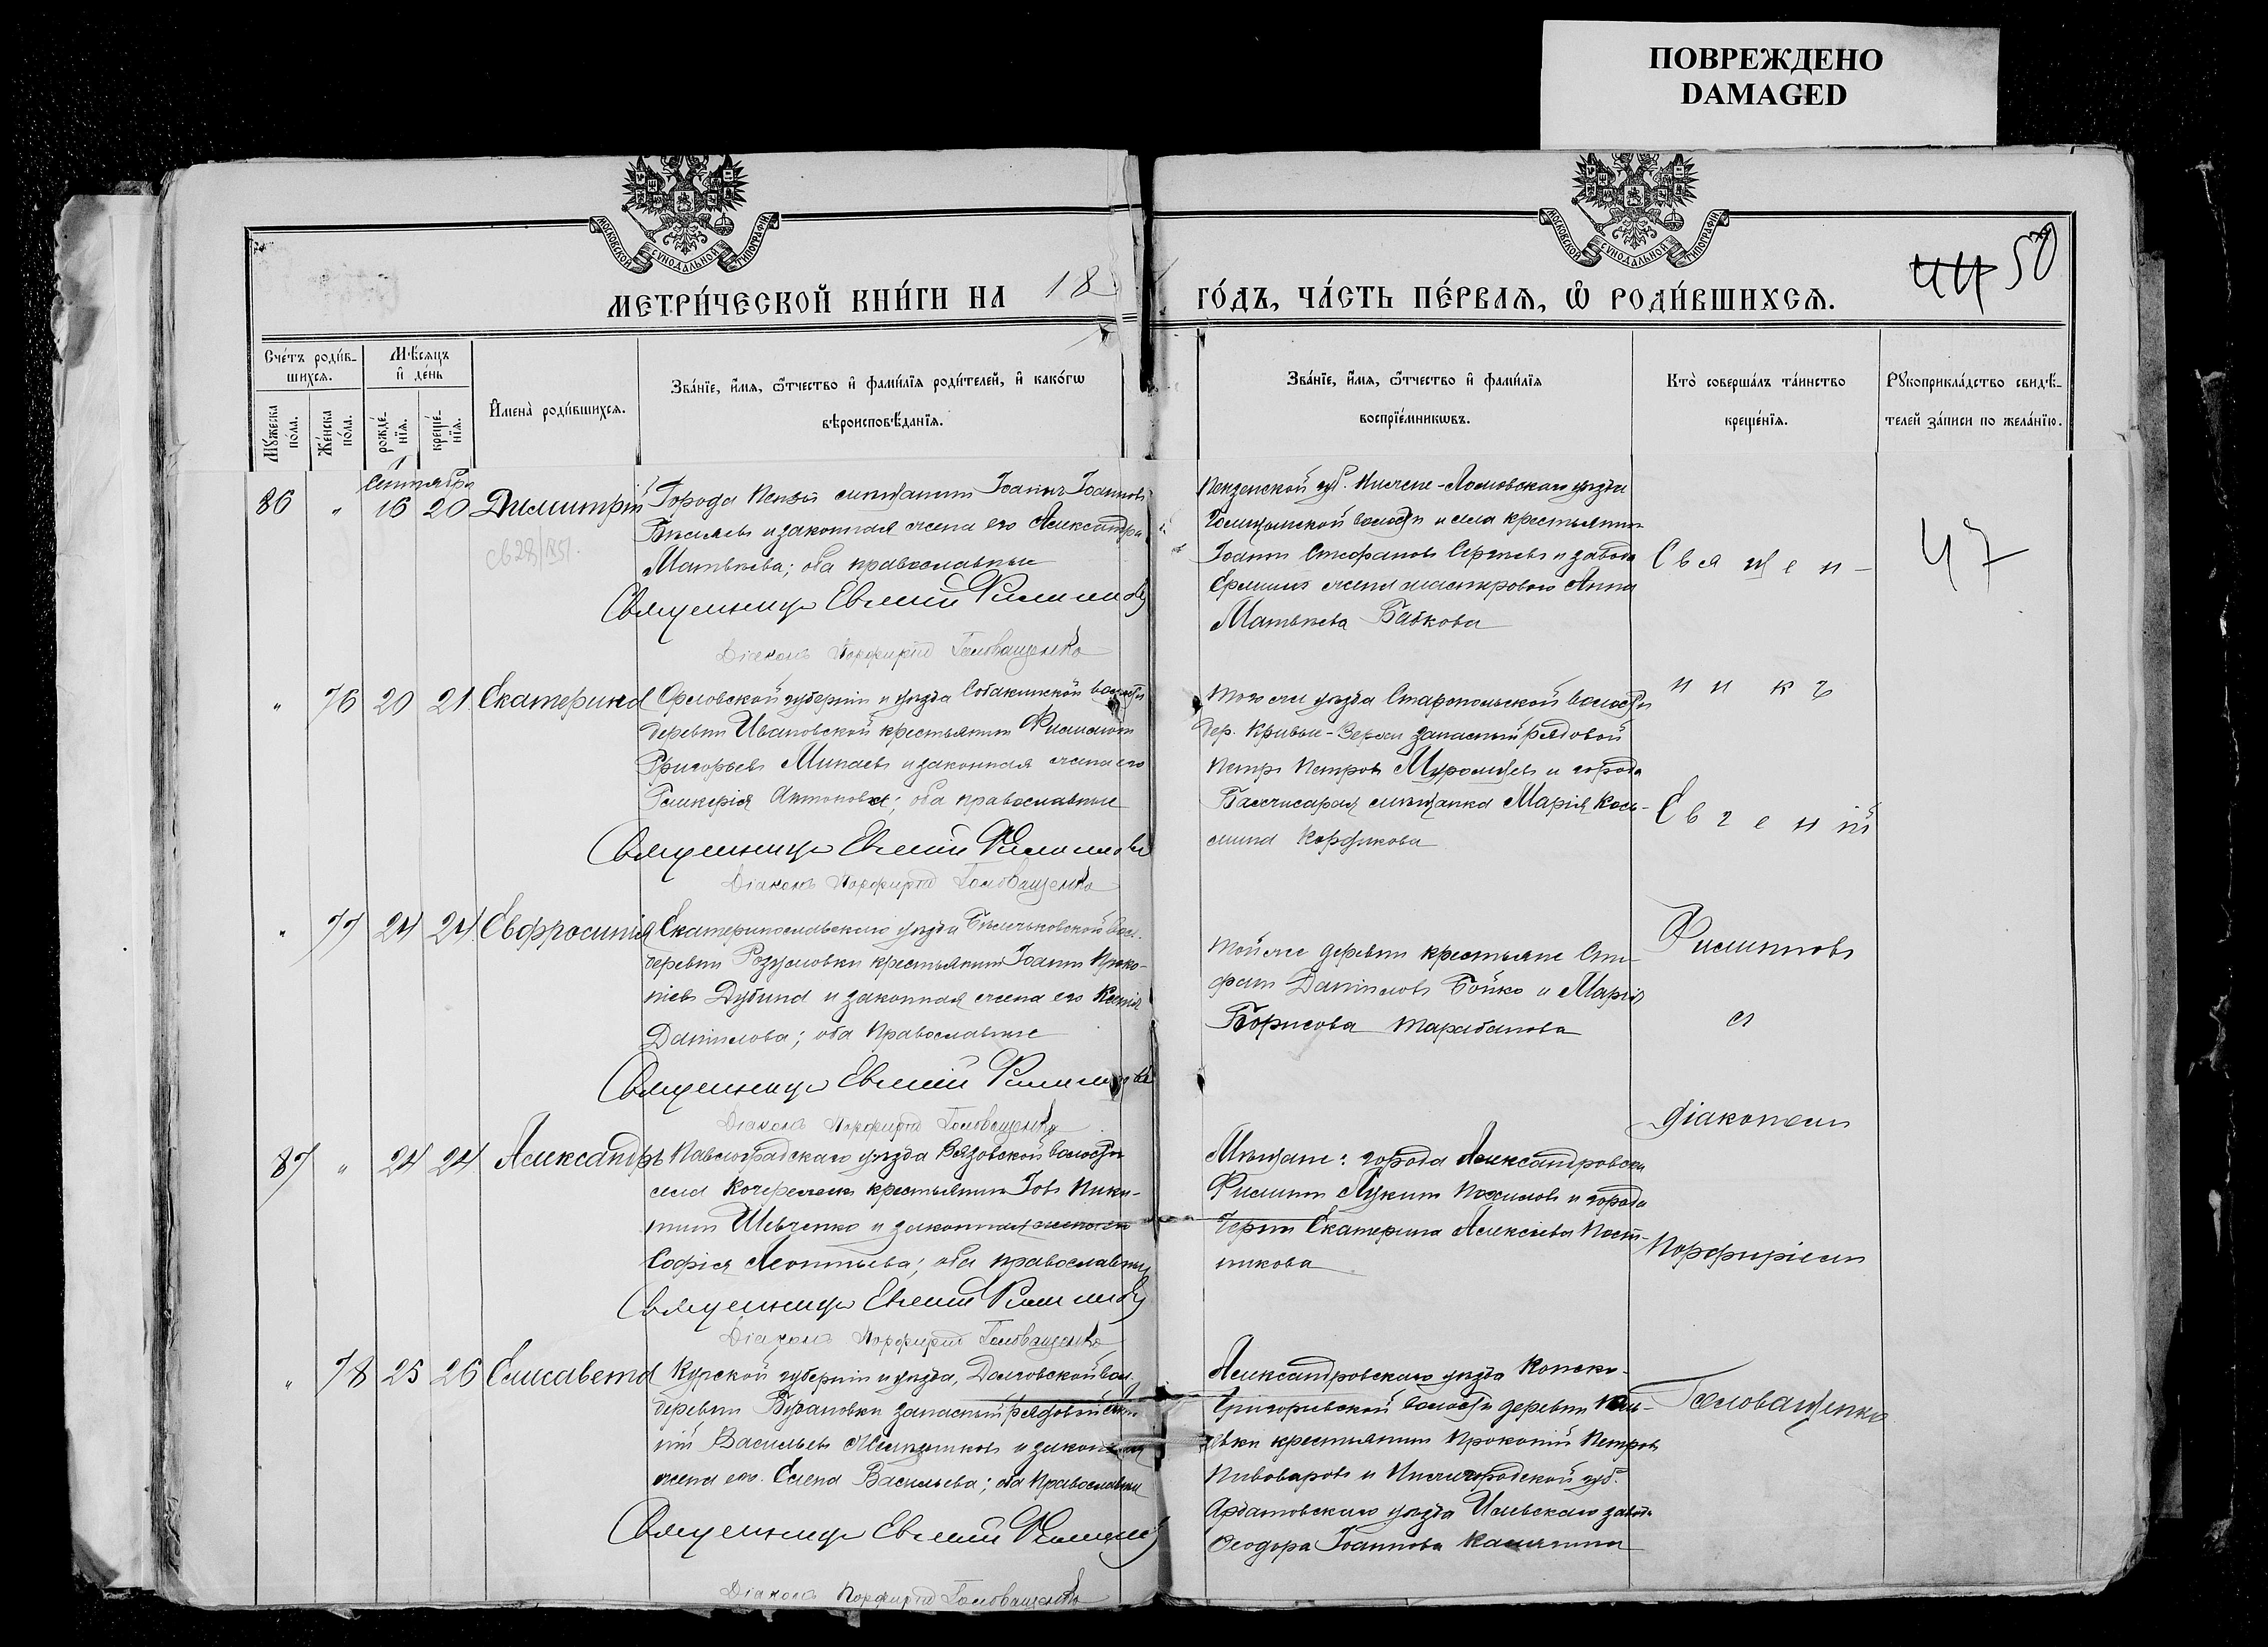 ПОВРЕЖДЕНО
DAMAGED
МОСКОВСКОЙ СУНОДАЛЬНОЙ ТИПОГРАФІИ
МОСКОВСКОЙ СУНОДАЛЬНОЙ ТИПОГРАФІИ
МЕТРИ́ЧЕСКОЙ КНИ́ГИ НА 18
ГО́ДЪ, ЧА́СТЬ ПЕ́РВАѦ, Ѡ҆ РОДИ́ВШИХСѦ.
44 50
Сче́тъ роди́в-
шихсѧ.
Мѣ́сѧцъ
и҆ де́нь
Мꙋ́жеска
по́ла.
Же́нска
по́ла.
рожде́-
нїѧ.
креще́-
нїѧ.
И҆мена̀ роди́вшихсѧ.
Зва́нїе, и҆́мѧ, ѻ҆́тчество и҆ фами́лїѧ роди́телей, и҆ како́гѡ
вѣроисповѣ́данїѧ.
Зва́нїе, и҆́мѧ, ѻ҆́тчество и҆ фами́лїѧ
воспрїе́мникѡвъ.
Кто̀ соверша́лъ та́инство
креще́нїѧ.
Рꙋкоприкла́дство свидѣ́-
телей за́писи по жела́нїю.
Сентября
86 " 16 20 Димитрій
Города Пензы мѣщанинъ Іоаннъ Іоанновъ
и законная жена его Александра
Матвѣева; оба православные
Священникъ Евгеній Филипповъ
Діаконъ Порфирій Головащенко
Пензенской губ. Нижне-Ломовскаго уѣзда
Голицынской волости и села крестьянинъ
Іоаннъ Стефановъ Сергѣевъ и завода
жена мастероваго Анна
Матвѣева Бабкова
47
" 76 20 21 Екатерина
Орловской губерніи и уѣзда Собакинской волости
деревни Ивановской крестьянинъ Филимонъ
Григорьевъ Минаевъ и законная жена его
Гликерія Антонова; оба православные
Священникъ Евгеній Филипповъ
Діаконъ Порфирій Головащенко
того же уѣзда волости
дер. Кривые-Верхи запасный рядовой
Петръ Петровъ Муромцевъ и города
Бахчисарая мѣщанка Марія Кось-
мина
" 77 24 24 Евфросинія
Екатеринославскаго уѣзда вол.
деревни Розумовки крестьянинъ Іоаннъ Проко-
піевъ Дубина и законная жена его Ксенія
Даніилова; оба Православные
Священникъ Евгеній Филипповъ
Діаконъ Порфирій Головащенко
Той же деревни крестьяне Сте-
фанъ Даніиловъ Бойко и Марія
Борисова Тарабанова
87 " 24 24 Александръ
Павлоградскаго уѣзда Вязовской волости
села Кочережекъ крестьянинъ Іовъ Ники-
тинъ Шевченко и законная жена его
Софія Леонтьева; оба православные
Священникъ Евгеній Филипповъ
Діаконъ Порфирій Головащенко
Мѣщане: города Александровска
Филиппъ Лукинъ и города
Екатерина Алексѣева Пост-
никова
" 78 25 26 Елисавета
Курской губерніи и уѣзда, Долговской вол.
деревни запасный рядовой
Васильевъ и законная
жена его Елена Васильева; оба Православные
Священникъ Евгеній Филипповъ
Діаконъ Порфирій Головащенко
Александровскаго уѣзда Конско-
Григорьевской волости деревни
крестьянинъ Прокопій Петровъ
Пивоваровъ и Нижегородской губ.
Ардатовскаго уѣзда Илевскаго завода
Ѳеодора Іоаннова
Священ-
никъ
Евгеній
Филипповъ
съ
діакономъ
Порфиріемъ
Головащенко